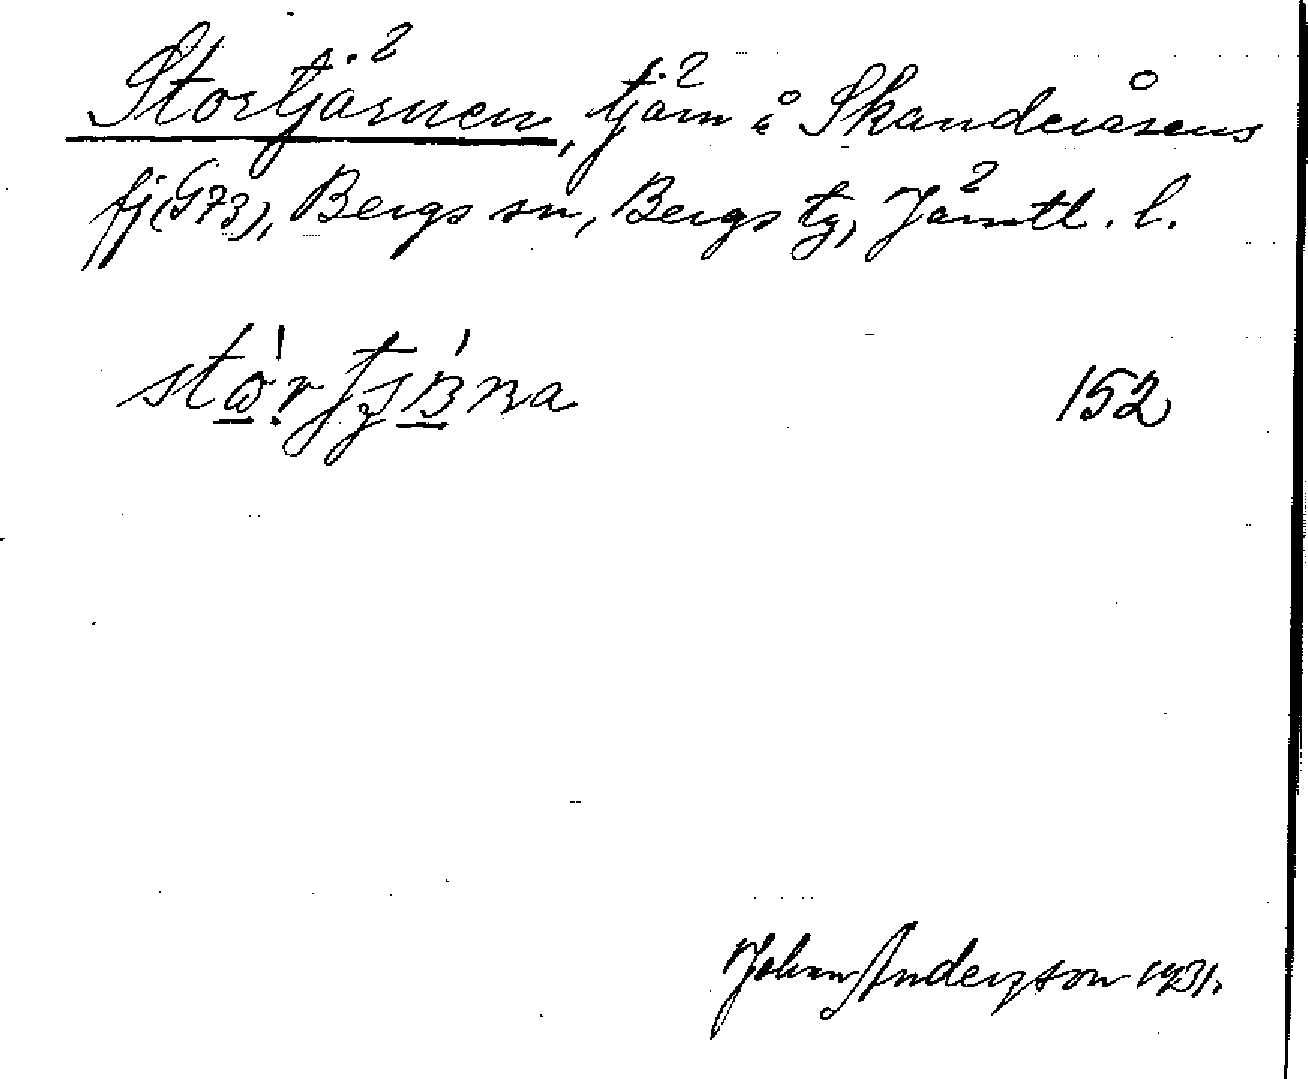 Stortjärnen, tjärn å Skanderåsens
fj (G73), Bergs sn, Bergs tg, Jämtl. l.
152
Johan Anderzson 1931.